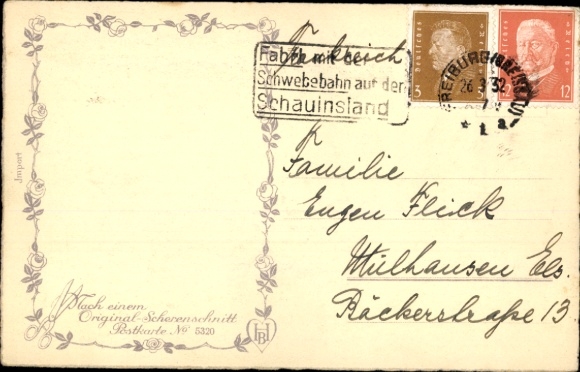 Frankreich
Fahrt mit der
Schwebebahn auf den
Schauinsland
DEUTSCHES REICH
3
DEUTSCHES REICH
12
FREIBURG (BREISGAU)
26. 3. 32
* 1 a
Familie
Eugen Flick
Mülhausen Els.
Bäckerstraße 13
Import
Nach einem
Original-Scherenschnitt
Postkarte No 5320
HB